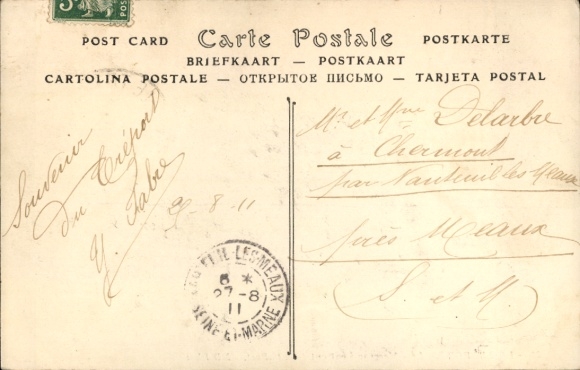 5
POST CARD Carte Postale POSTKARTE
BRIEFKAART — POSTKAART
CARTOLINA POSTALE — ОТКРЫТОЕ ПИСЬМО — TARJETA POSTAL
Souvenir
du Tréport
Y. Fabre
8-11
NANTEUIL-LES-MEAUX
6 *
27-8
11
SEINE-ET-MARNE
Mr et Mme Delarbre
à Chermont
par Nanteuil les Meaux
près Meaux
S. et M.